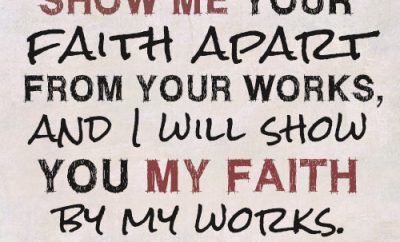 SHOW ME YOUR
FAITH APART
FROM YOUR WORKS,
AND I WILL SHOW
YOU MY FAITH
BY MY WORKS.